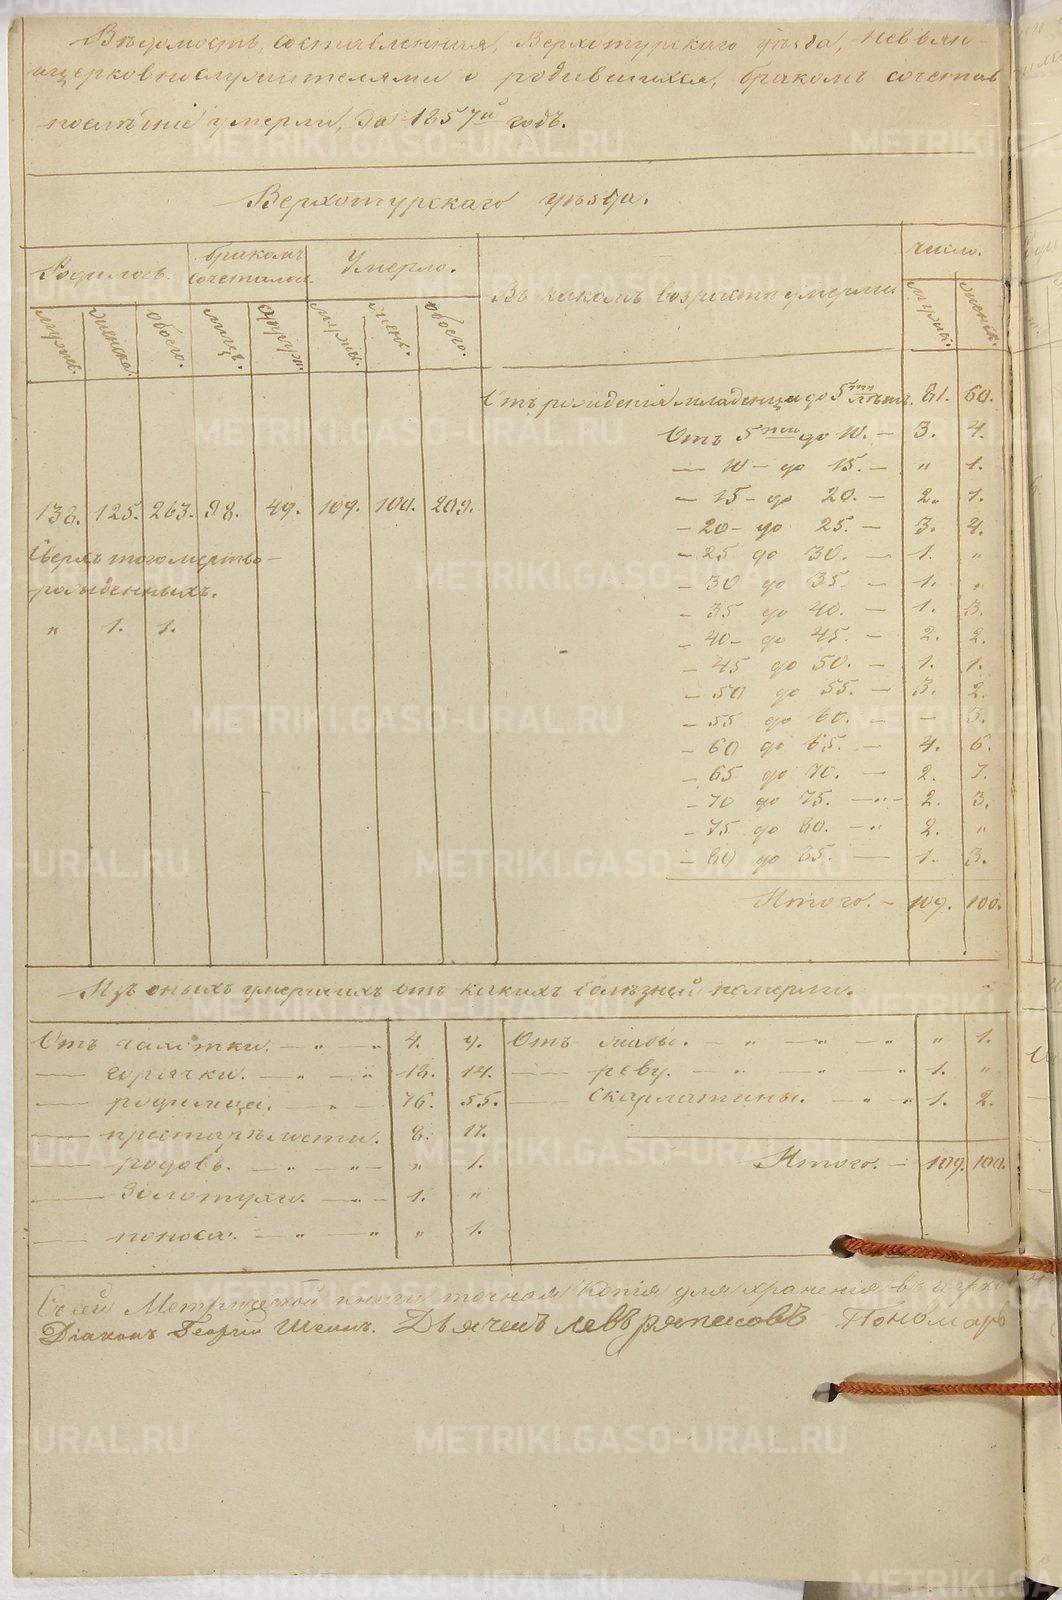 Вѣдомость, составленная, Верхотурскаго уѣзда, Невьян-
и церковнослужителями о родившихся, бракомъ сочетав
умерли, За 1857й годъ.
Верхотурскаго уѣзда.
Родилось. бракомъ сочеталось. Умерло. Въ какомъ возрастѣ умерли. число.
мужеск. женска. обоего. лицъ. мужеск. женс. обоего. мужеск. женск.
Отъ рожденія младенца до 5ти лѣтъ. 81. 60.
Отъ 5ти до 10. — 3. 4.
— 10 — до 15. — „ 1.
— 15 — до 20. — 2. 1.
138. 125. 263. 98. 49. 109. 100. 209.
— 20 — до 25. — 3. 4.
Сверхъ того мертво-
рожденныхъ.
„ 1. 1.
— 25 до 30. — 1. „
— 30 до 35. — 1. „
— 35 до 40. — 1. 3.
— 40 — до 45. — 2. 2.
— 45 до 50. — 1. 1.
— 50 до 55. — 3. 2.
— 55 до 60. — — 3.
— 60 до 65. — 4. 6.
— 65 до 70. — 2. 7.
— 70 до 75. — „ — 2. 3.
— 75 до 80. — „ 2. „
— 80 до 85. — 1. 3.
Итого. — 109. 100.
Изъ оныхъ умершихъ отъ какихъ болѣзней померли.
Отъ чахотки. — „ — „ 4. 9.
— горячки. — „ — „ 18. 14.
— родимца. — „ — 76. 55.
— престарѣлости. 8. 17.
— родовъ. — „ — „ — „ 1.
— Золотухи. — „ — 1. „
— поноса. — „ — „ „ 1.
Отъ жабы. — „ — „ — „ „ 1.
— реву. — „ „ — „ 1. „
— Скарлатины. — „ „ 1. 2.
Итого. — 109. 100.
Съ сей Метрической книги точная Копія для храненія въ церк
Діаконъ Георгій Дьячекъ Левъ Пономарь
METRIKI.GASO-URAL.RU